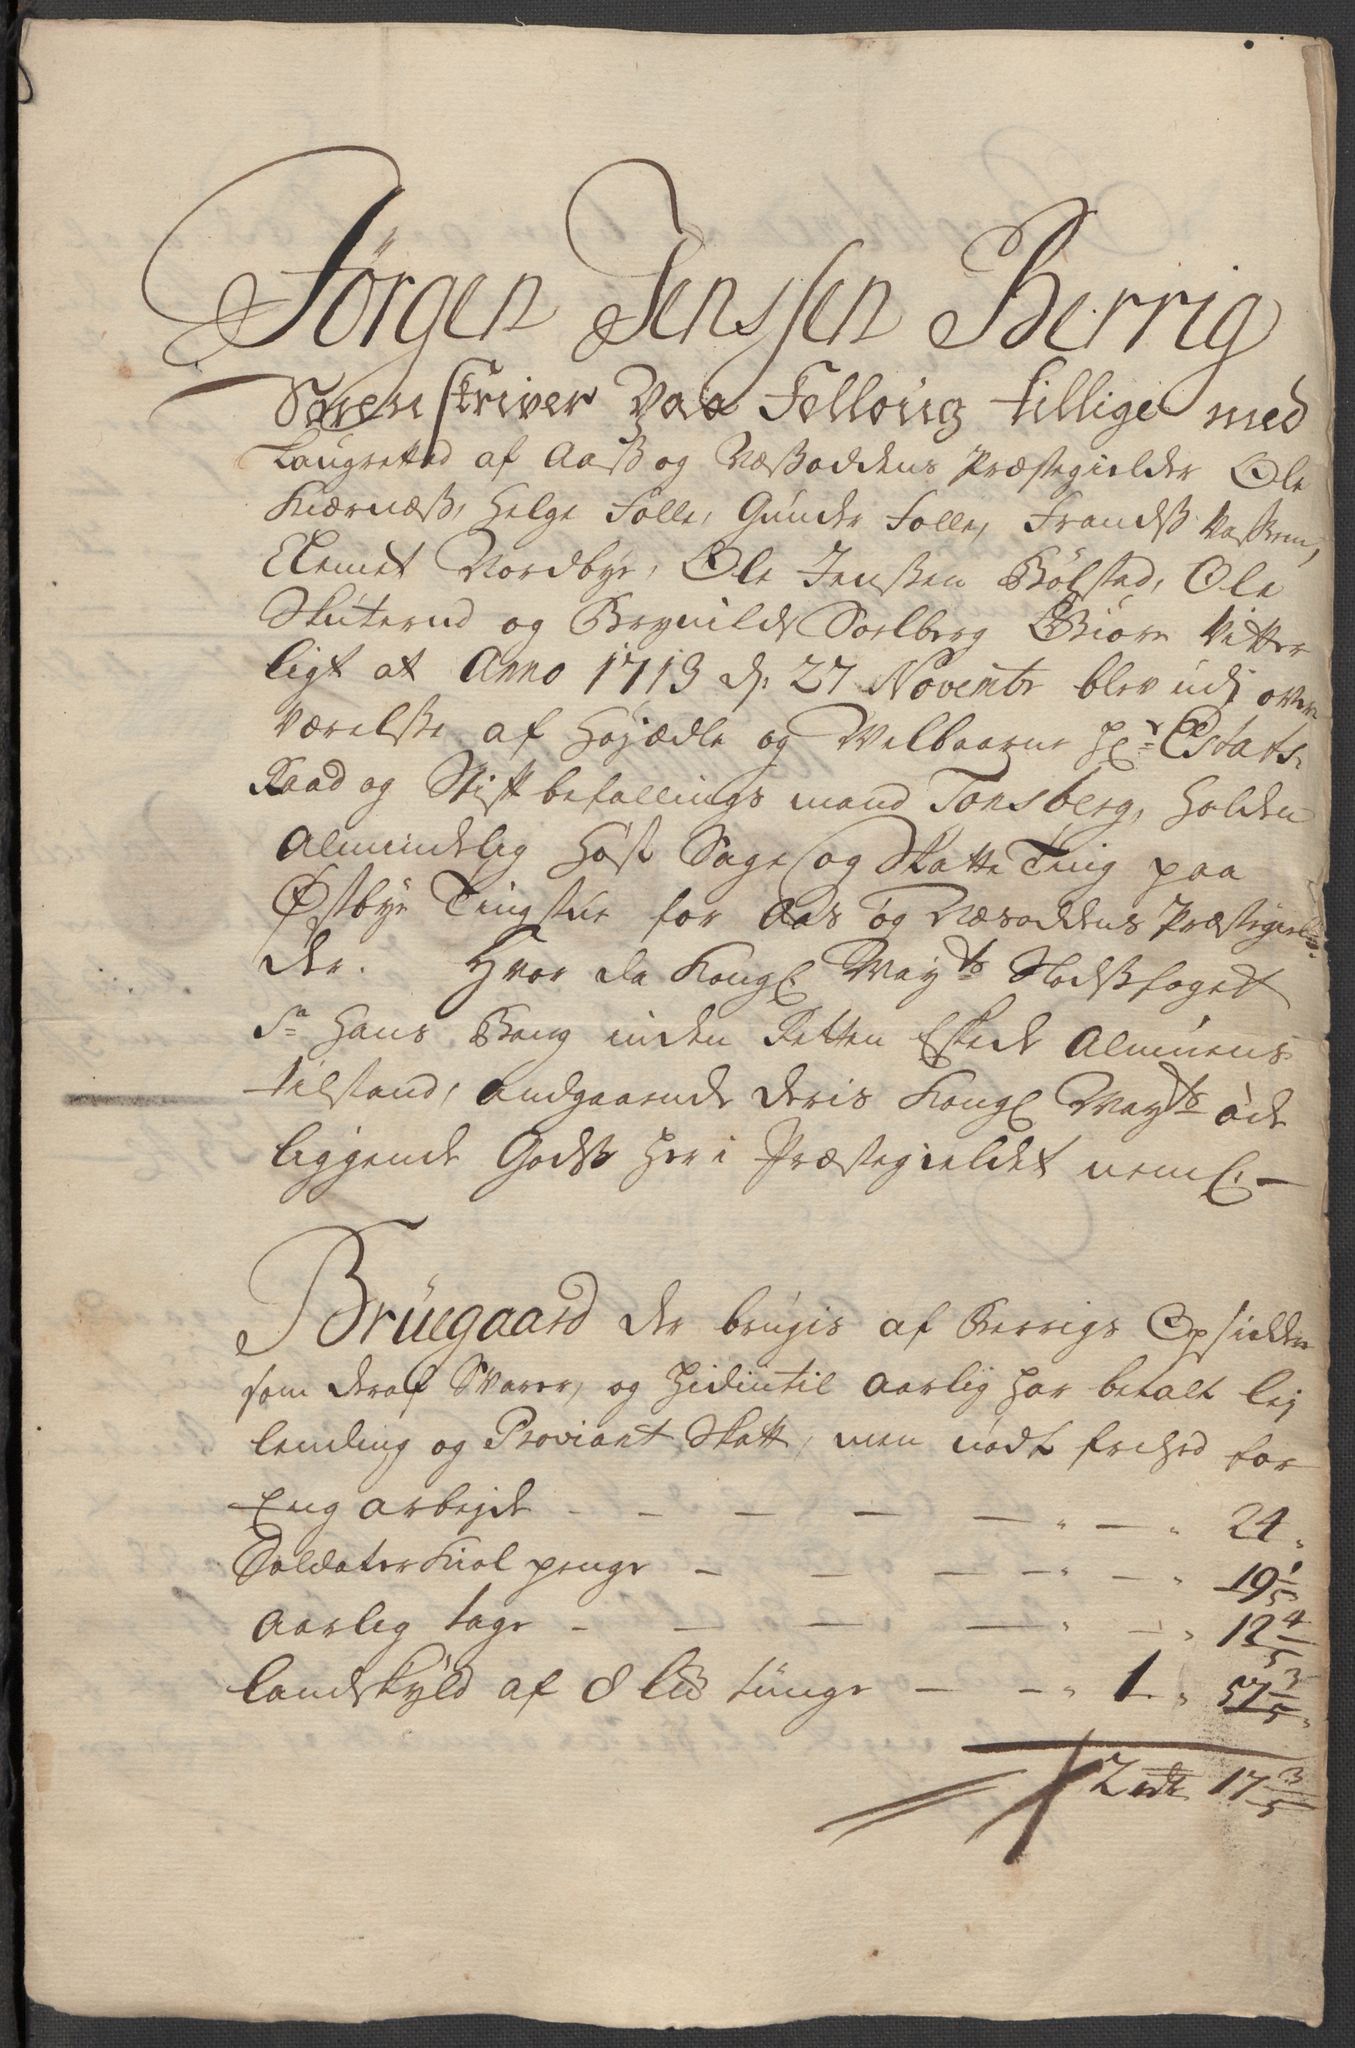 Jørgen Jenssen Berrig
Sorenskriver paa Folloug tillige med
Laugrettet af Aass og Næssoddens Præstegielder Ole
Kiærnæss, Helge Folle, Gunder Folle, Frandss
Clemet Nordbye, Ole Jenssen Bølstad, Ole
Skuterud og Brynild Soelberg Giøre Vitter
ligt at Anno 1713 d. 27 Novembr blev udj over
værelsse af Højædle og Welbaarne Hr. Etats-
Raad og Stiftbefallingsmand Tonsberg, holden
Almindelig Høst Sage og Skatte Ting paa
Østbye Tingstue for Aas og Næsoddens Præstegiel-
der. Hvor da Kongl. Mayts Slodssfoget
Sr Hans Bang inden Retten Eskede Almuens
tilstand, andgaaende deris Kongl. Mayts øde
liggende Godss her i Præstegieldet neml. —
Bruegaard der brugis af Berrigs Opsidder
som deraf Svarer, og hidintil Aarlig har betalt lej
lending og Proviant Skatt, men nødt frihed for
Eng arbejde — — — — — " — " 24 "
Soldater Kiol penge — — — — " — " 19 1/5
Aarlig tage — — — — " — " 12 4/5
Landskyld af 8 lis tunge — — " 1 " 57 3/5 "
2 rdr 17 3/5